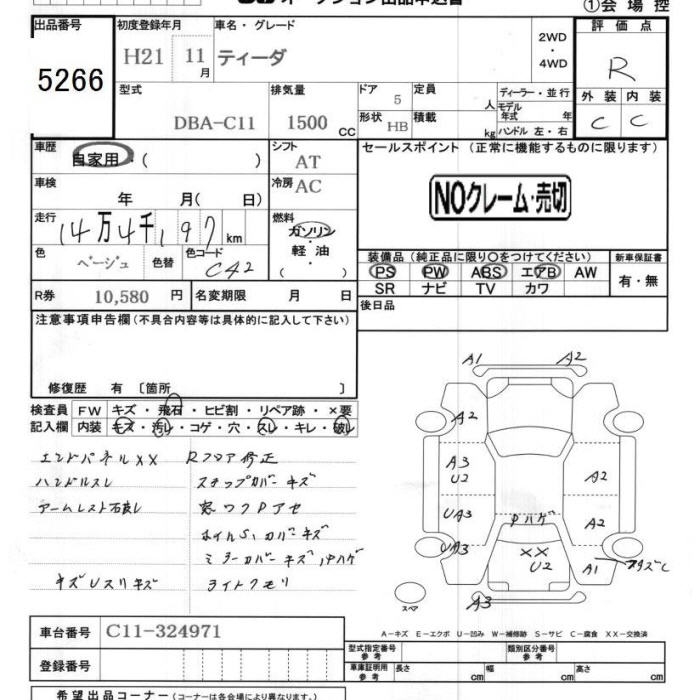 ①会場控
出品番号 初度登録年月 車名・グレード 評価点
5266 H21 11月 ティーダ 2WD・4WD R
型式 排気量 ドア 定員 ディーラー・並行 外装 内装
DBA-C11 1500CC 5 人 モデル年式 年 C C
形状 HB 積載 kg ハンドル 左・右
車歴 自家用・( ) シフト AT セールスポイント (正常に機能するものに限ります)
車検 年 月(日) 冷房 AC NOクレーム・売切
走行 14万4千197km 燃料 ガソリン・軽油・( )
色 ベージュ 色替 色コード C42
装備品 (純正品に限り○をつけてください) 新車保証書
PS PW ABS エアB AW 有・無
SR ナビ TV カワ
R券 10,580円 名変期限 月 日 後日品
注意事項申告欄 (不具合内容等は具体的に記入して下さい)
修復歴 有 〔箇所 〕
検査員 FW キズ・飛石・ヒビ割・リペア跡・×要
記入欄 内装 キズ・汚れ・コゲ・穴・スレ・キレ・破レ
エンドパネルXX Rフロア修正
ハンドルスレ ステップカバーキズ
アームレスト破レ
ホイルS,カバーキズ
ミラーカバーキズ,Pハゲ
キズUスリキズ ライトクモリ
A1 A2
A2
A3 U2 A2
UA3 A2
Pハゲ
UA3 XX U2 A1
スペア A3
A-キズ E-エクボ U-凹み W-補修跡 S-サビ C-腐食 XX-交換済
車台番号 C11-324971
登録番号
型式指定番号 参考 類別区分番号 参考
車庫証明用 参考 長さ cm 幅 cm 高さ cm
希望出品コーナー (コーナーは各会場により異なります。)